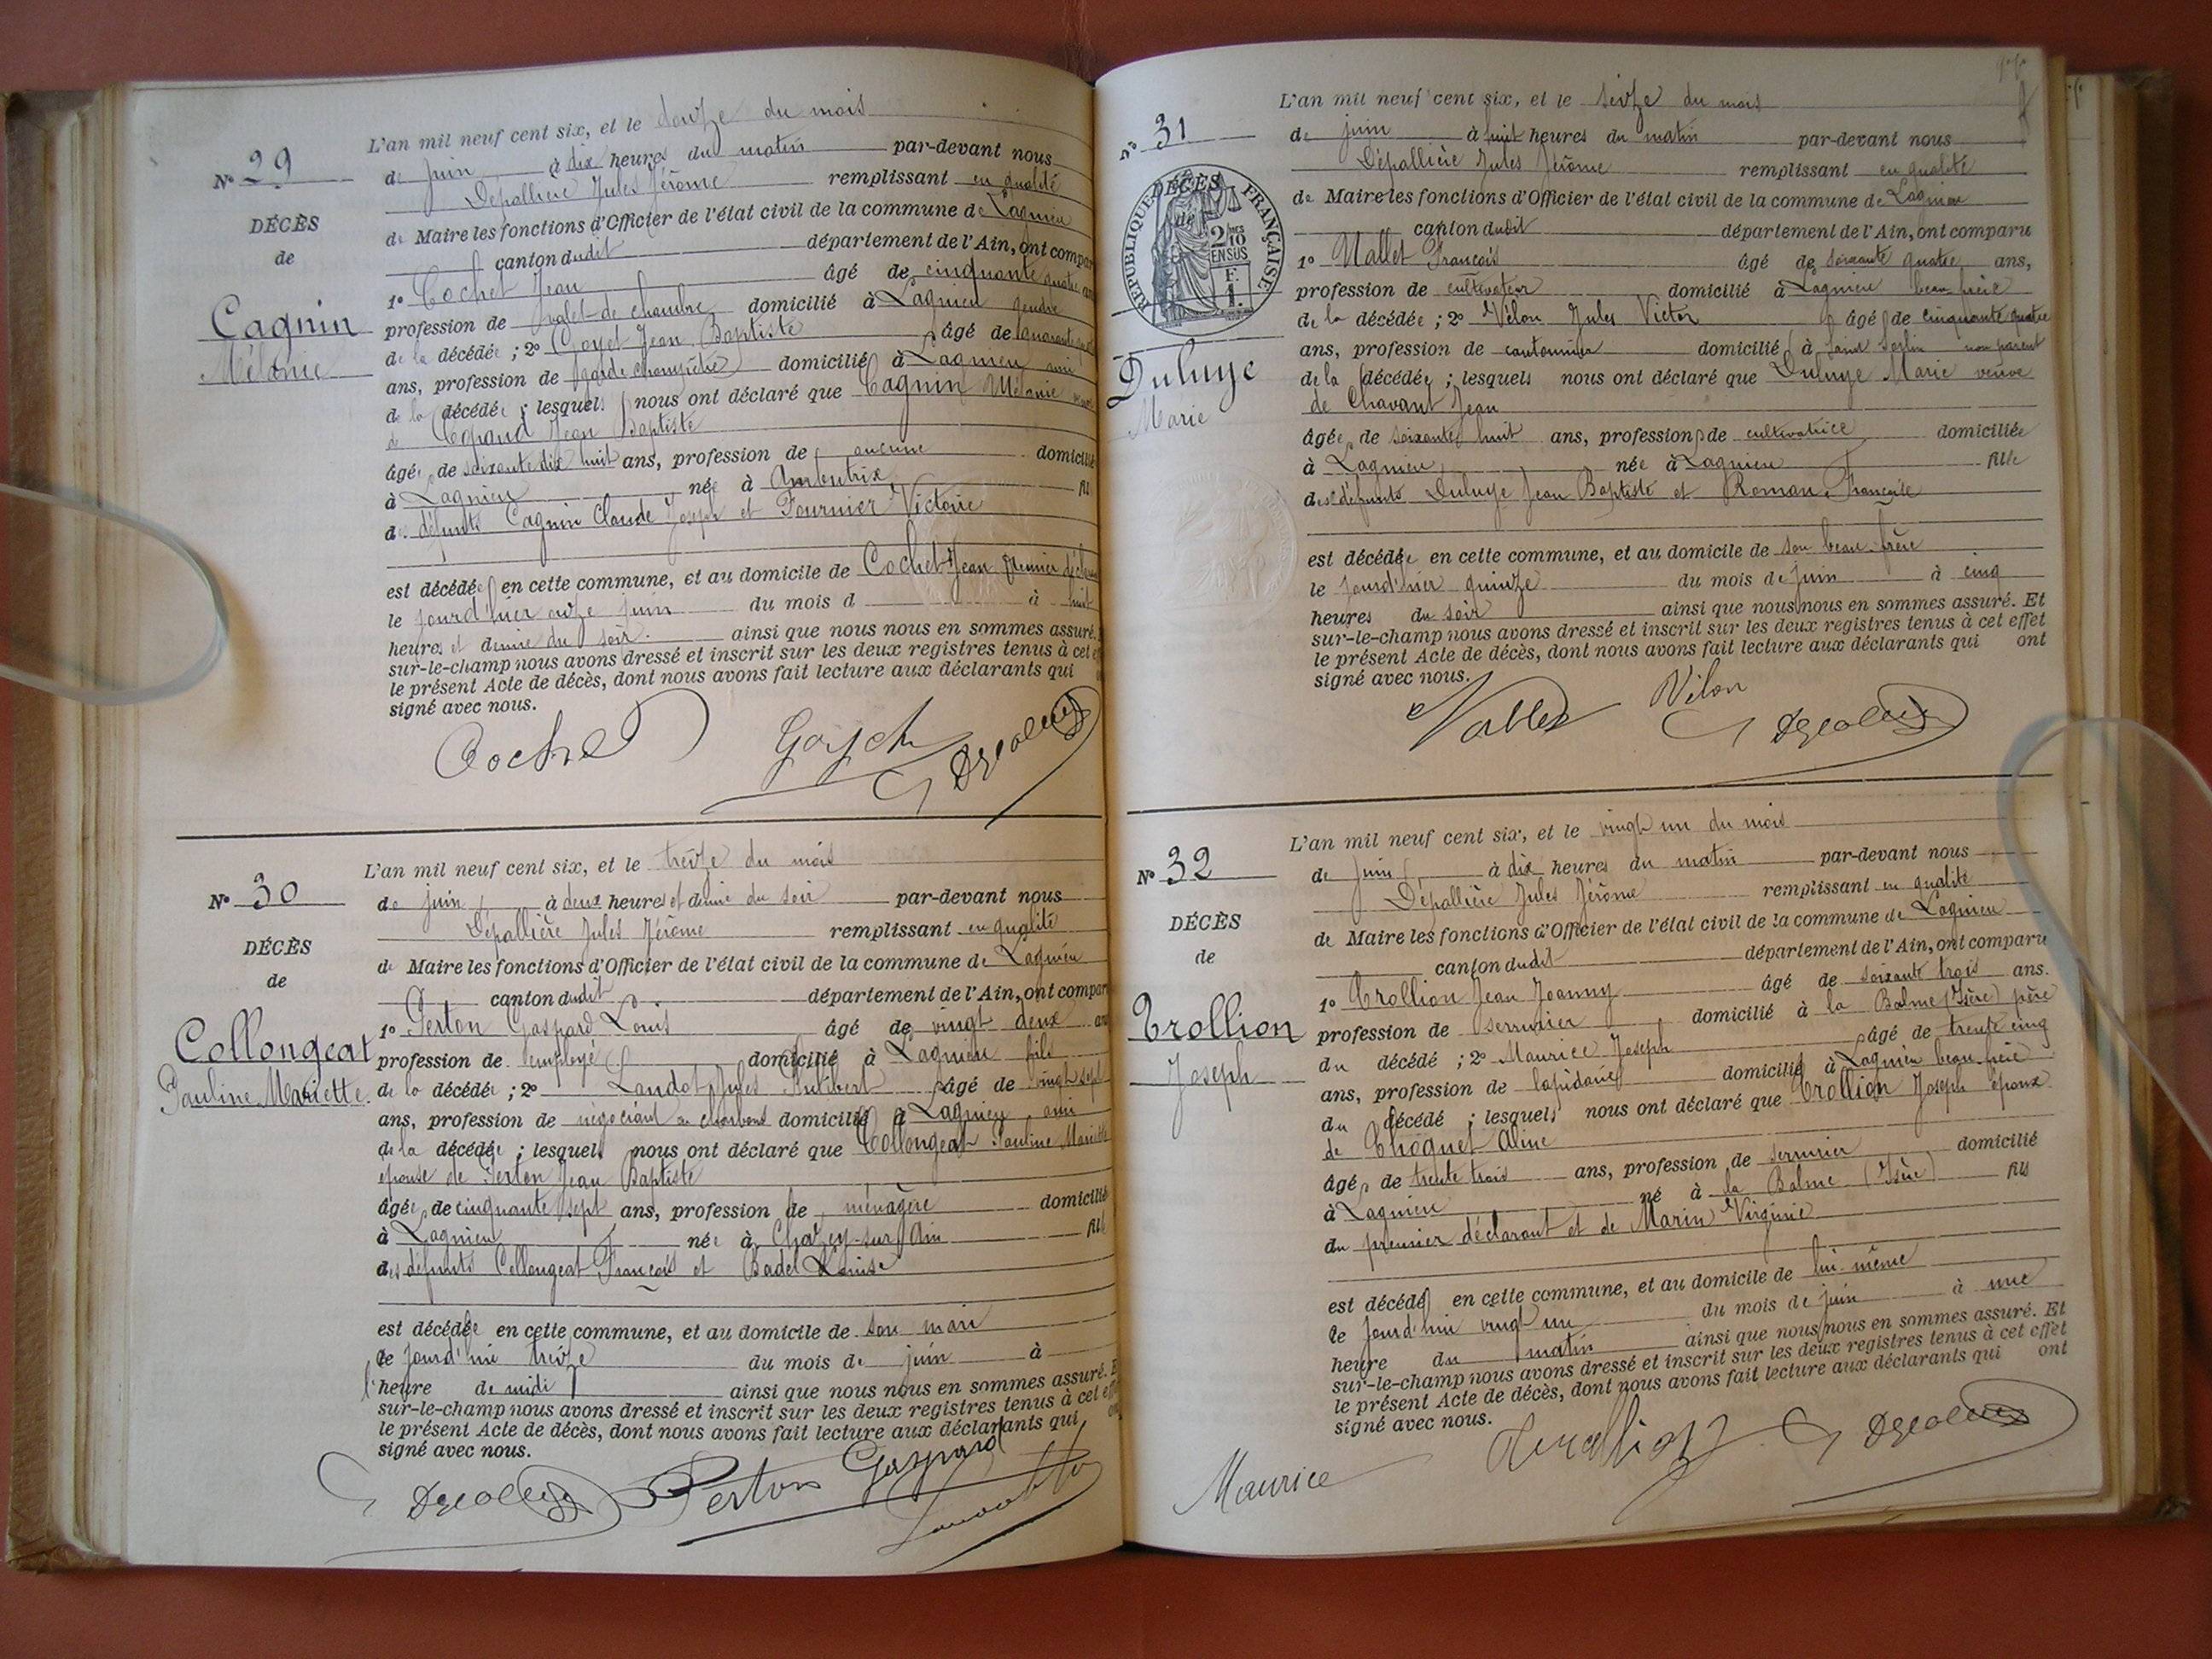 L'an mil neuf cent six, et le douze du mois
N° 29
de juin à dix heures du matin par-devant nous
Dépallière Jules Jérôme remplissant en qualité
DÉCÈS
de Maire les fonctions d'Officier de l'état civil de la commune de Lagnieu
de
canton dudit département de l'Ain, ont compar
1° Cochet Jean âgé de cinquante quatre
Cagnin
Mélanie
profession de valet de chambre domicilié à Lagnieu gendre
de la décédée ; 2° Goyet Jean Baptiste âgé de quarante
ans, profession de garde champêtre domicilié à Lagnieu ami
de la décédée ; lesquels nous ont déclaré que Cagnin Mélanie
de Jean Baptiste
âgée de soixante dix huit ans, profession de aucune domicilié
à Lagnieu née à Ambutrix
des défunts Cagnin Claude Joseph et Fournier Victoire
est décédée en cette commune, et au domicile de Cochet Jean premier
le jourd'hier onze juin du mois d à huit
heures et demie du soir. ainsi que nous nous en sommes assuré.
sur-le-champ nous avons dressé et inscrit sur les deux registres tenus à cet
le présent Acte de décès, dont nous avons fait lecture aux déclarants qui
signé avec nous.
Cochet
L'an mil neuf cent six, et le treize du mois
N° 30
de juin à deux heures et demie du soir par-devant nous
Dépallière Jules Jérôme remplissant en qualité
DÉCÈS
de Maire les fonctions d'Officier de l'état civil de la commune de Lagnieu
de
canton dudit département de l'Ain, ont compar
Collongeat
Pauline Mariette
1° Perton Gaspard Louis âgé de vingt deux
profession de employé domicilié à Lagnieu fils
de la décédée ; 2° Landot Jules âgé de vingt sept
ans, profession de négociant en charbons domicilié à Lagnieu ami
de la décédée ; lesquels nous ont déclaré que Collongeat Pauline Mariette
épouse de Perton Jean Baptiste
âgée de cinquante sept ans, profession de ménagère domicilié
à Lagnieu née à Chazey-sur-Ain fille
des défunts Collongeat François et Badel Louise
est décédée en cette commune, et au domicile de son mari
le jourd'hui treize du mois de juin à
l'heure de midi ainsi que nous nous en sommes assuré.
sur-le-champ nous avons dressé et inscrit sur les deux registres tenus à cet
le présent Acte de décès, dont nous avons fait lecture aux déclarants qui
signé avec nous.
Perton Gaspard
L'an mil neuf cent six, et le seize du mois
N° 31
de juin à huit heures du matin par-devant nous
Dépallière Jules Jérôme remplissant en qualité
de Maire les fonctions d'Officier de l'état civil de la commune de Lagnieu
RÉPUBLIQUE FRANÇAISE
DÉCÈS
de
2/10 EN SUS
F. 1.
canton dudit département de l'Ain, ont comparu
1° Nallet François âgé de soixante quatre ans,
profession de cultivateur domicilié à Lagnieu beau frère
de la décédée ; 2° Vélon Jules Victor âgé de cinquante quatre
ans, profession de cantonnier domicilié à Saint Sorlin non parent
Duluye
Marie
de la décédée ; lesquels nous ont déclaré que Duluye Marie veuve
de Chavant Jean
âgée de soixante huit ans, profession de cultivatrice domiciliée
à Lagnieu née à Lagnieu fille
des défunts Duluye Jean Baptiste et Roman Françoise
est décédée en cette commune, et au domicile de son beau-frère
le jourd'hier quinze du mois de juin à cinq
heures du soir ainsi que nous nous en sommes assuré. Et
sur-le-champ nous avons dressé et inscrit sur les deux registres tenus à cet effet
le présent Acte de décès, dont nous avons fait lecture aux déclarants qui ont
signé avec nous.
Nallet Vélon
L'an mil neuf cent six, et le vingt un du mois
N° 32
de juin à dix heures du matin par-devant nous
Dépallière Jules Jérôme remplissant en qualité
DÉCÈS
de Maire les fonctions d'Officier de l'état civil de la commune de Lagnieu
de
canton dudit département de l'Ain, ont comparu
1° Trollion Jean Joanny âgé de soixante trois ans.
Trollion
Joseph
profession de serrurier domicilié à la Balme (Isère) père
du décédé ; 2° Maurice Joseph âgé de trente cinq
ans, profession de lapidaire domicilié à Lagnieu beau-frère
du décédé ; lesquels nous ont déclaré que Trollion Joseph époux
de Choquet Aline
âgé de trente trois ans, profession de serrurier domicilié
à Lagnieu né à la Balme (Isère) fils
du premier déclarant et de Marin Virginie
est décédé en cette commune, et au domicile de lui-même
le jourd'hui vingt un du mois de juin à une
heure du matin ainsi que nous nous en sommes assuré. Et
sur-le-champ nous avons dressé et inscrit sur les deux registres tenus à cet effet
le présent Acte de décès, dont nous avons fait lecture aux déclarants qui ont
signé avec nous.
Maurice Trollion